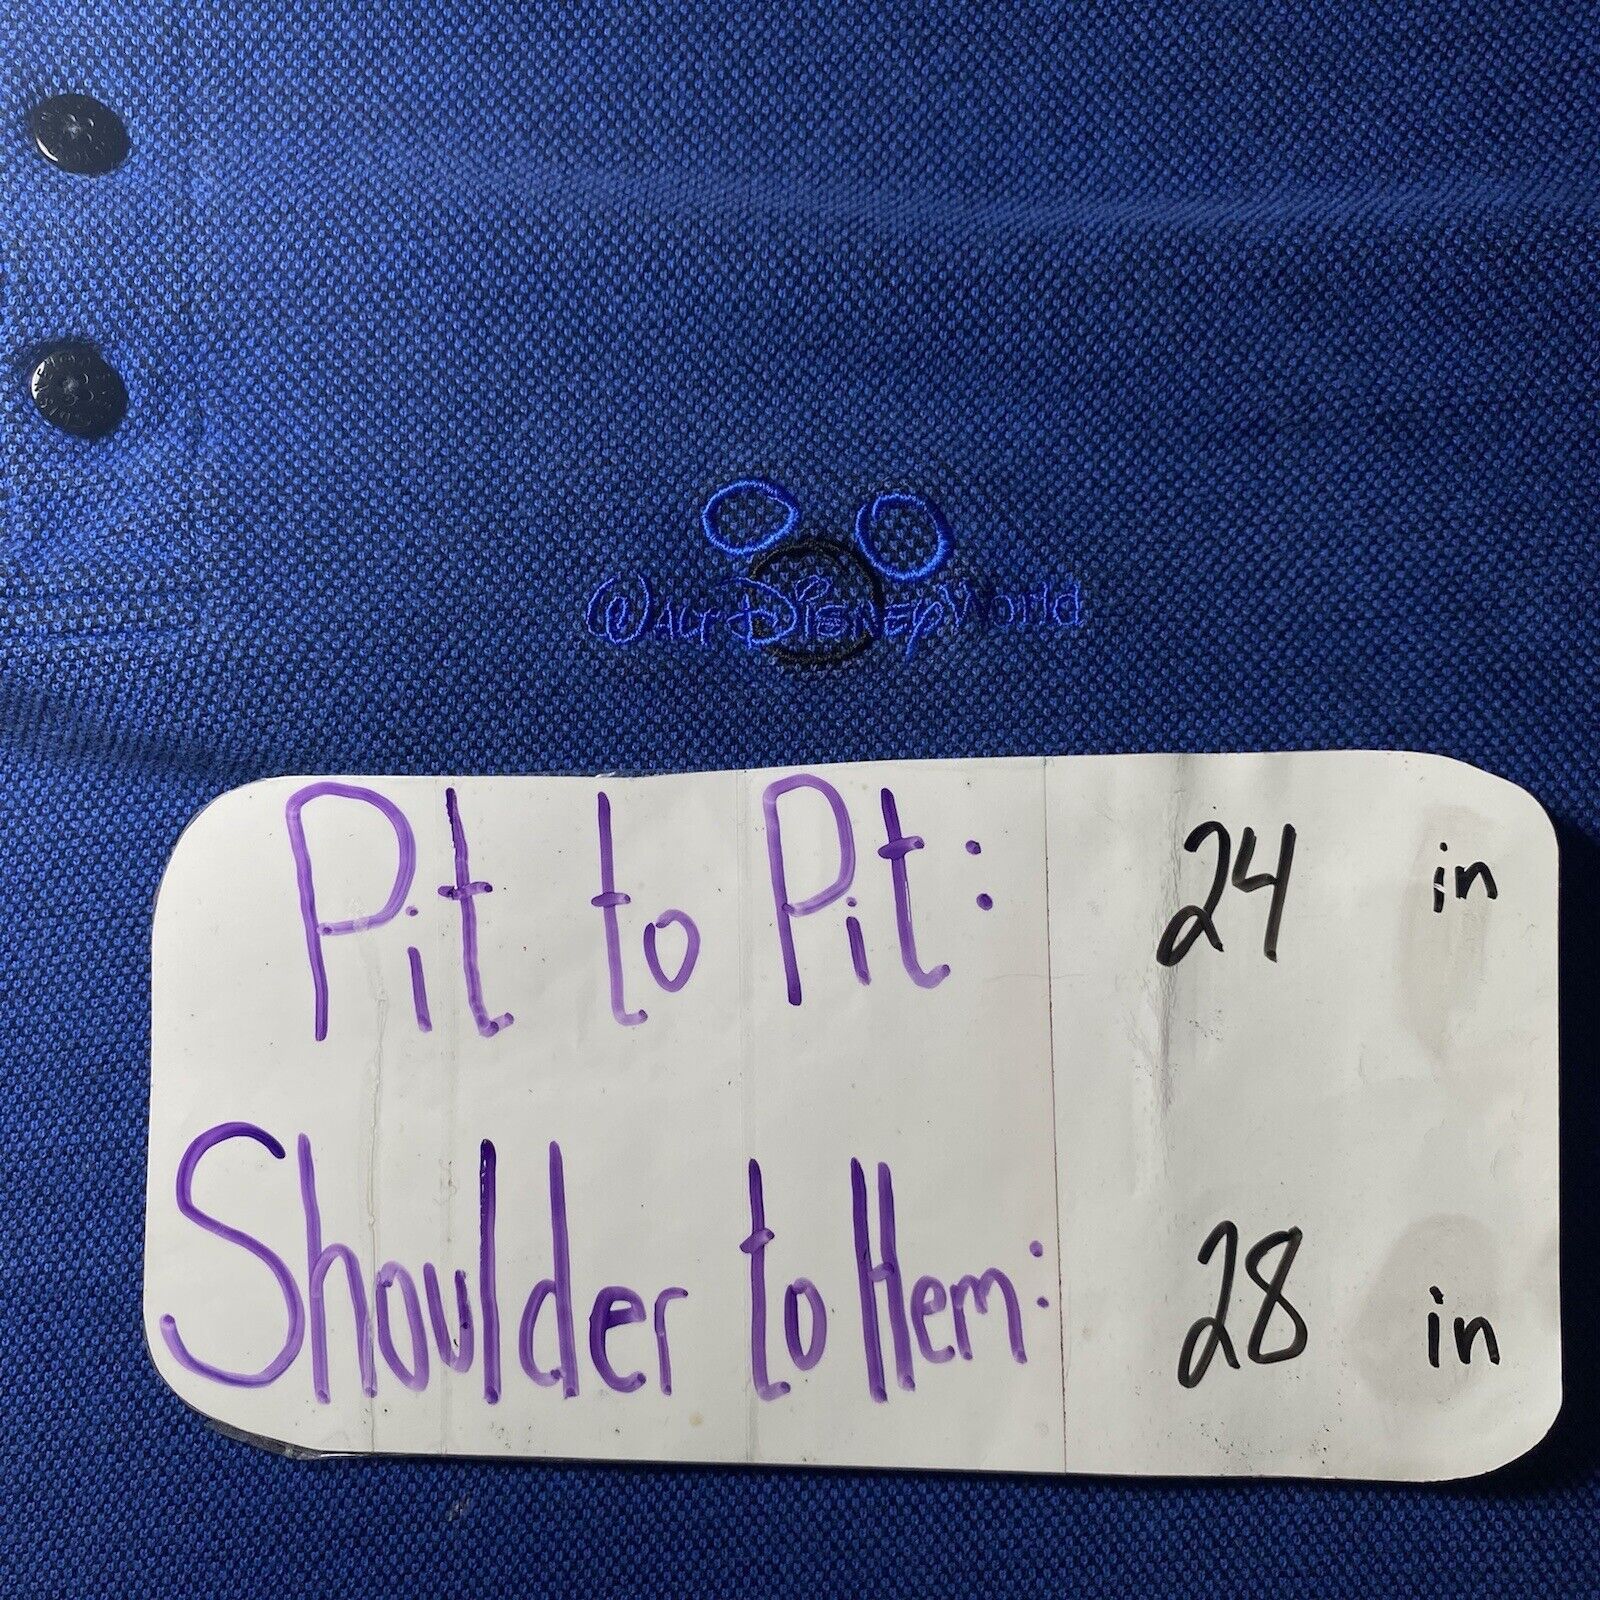 Walt Disney World
Pit to Pit: 24 in
Shoulder to Hem: 28 in